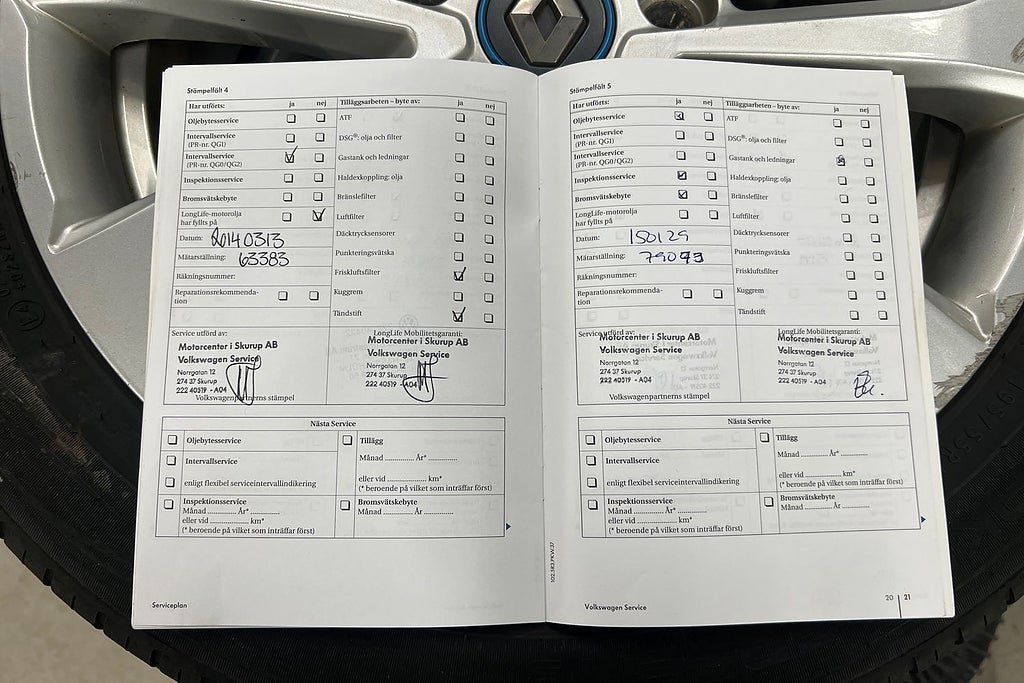 Stämpelfält 4
Har utförts: ja nej
Oljebytesservice
Intervallservice
(PR-nr. QG1)
Intervallservice
(PR-nr. QG0/QG2)
Inspektionsservice
Bromsvätskebyte
LongLife-motorolja
har fyllts på
Datum: 20140313
Mätarställning: 63383
Räkningsnummer:
Reparationsrekommenda-
tion
Tilläggsarbeten – byte av: ja nej
ATF
DSG®: olja och filter
Gastank och ledningar
Haldexkoppling: olja
Bränslefilter
Luftfilter
Däcktrycksensorer
Punkteringsvätska
Friskluftsfilter
Kuggrem
Tändstift
Service utförd av:
Motorcenter i Skurup AB
Volkswagen Service
Norrgatan 12
274 37 Skurup
222 40519 - A04
LongLife Mobilitetsgaranti:
Motorcenter i Skurup AB
Volkswagen Service
Norrgatan 12
274 37 Skurup
222 40519 - A04
Volkswagenpartnerns stämpel
Nästa Service
Oljebytesservice
Intervallservice
enligt flexibel serviceintervallindikering
Inspektionsservice
Månad ............. År* .............
eller vid ............. km*
(* beroende på vilket som inträffar först)
Tillägg
Månad ............. År* .............
eller vid ............. km*
(* beroende på vilket som inträffar först)
Bromsvätskebyte
Månad ............. År* .............
Serviceplan
Stämpelfält 5
Har utförts: ja nej
Oljebytesservice
Intervallservice
(PR-nr. QG1)
Intervallservice
(PR-nr. QG0/QG2)
Inspektionsservice
Bromsvätskebyte
LongLife-motorolja
har fyllts på
Datum: 150129
Mätarställning: 79093
Räkningsnummer:
Reparationsrekommenda-
tion
Tilläggsarbeten – byte av: ja nej
ATF
DSG®: olja och filter
Gastank och ledningar
Haldexkoppling: olja
Bränslefilter
Luftfilter
Däcktrycksensorer
Punkteringsvätska
Friskluftsfilter
Kuggrem
Tändstift
Service utförd av:
Motorcenter i Skurup AB
Volkswagen Service
Norrgatan 12
274 37 Skurup
222 40519 - A04
LongLife Mobilitetsgaranti:
Motorcenter i Skurup AB
Volkswagen Service
Norrgatan 12
274 37 Skurup
222 40519 - A04
Volkswagenpartnerns stämpel
Nästa Service
Oljebytesservice
Intervallservice
enligt flexibel serviceintervallindikering
Inspektionsservice
Månad ............. År* .............
eller vid ............. km*
(* beroende på vilket som inträffar först)
Tillägg
Månad ............. År* .............
eller vid ............. km*
(* beroende på vilket som inträffar först)
Bromsvätskebyte
Månad ............. År* .............
Volkswagen Service
20 21